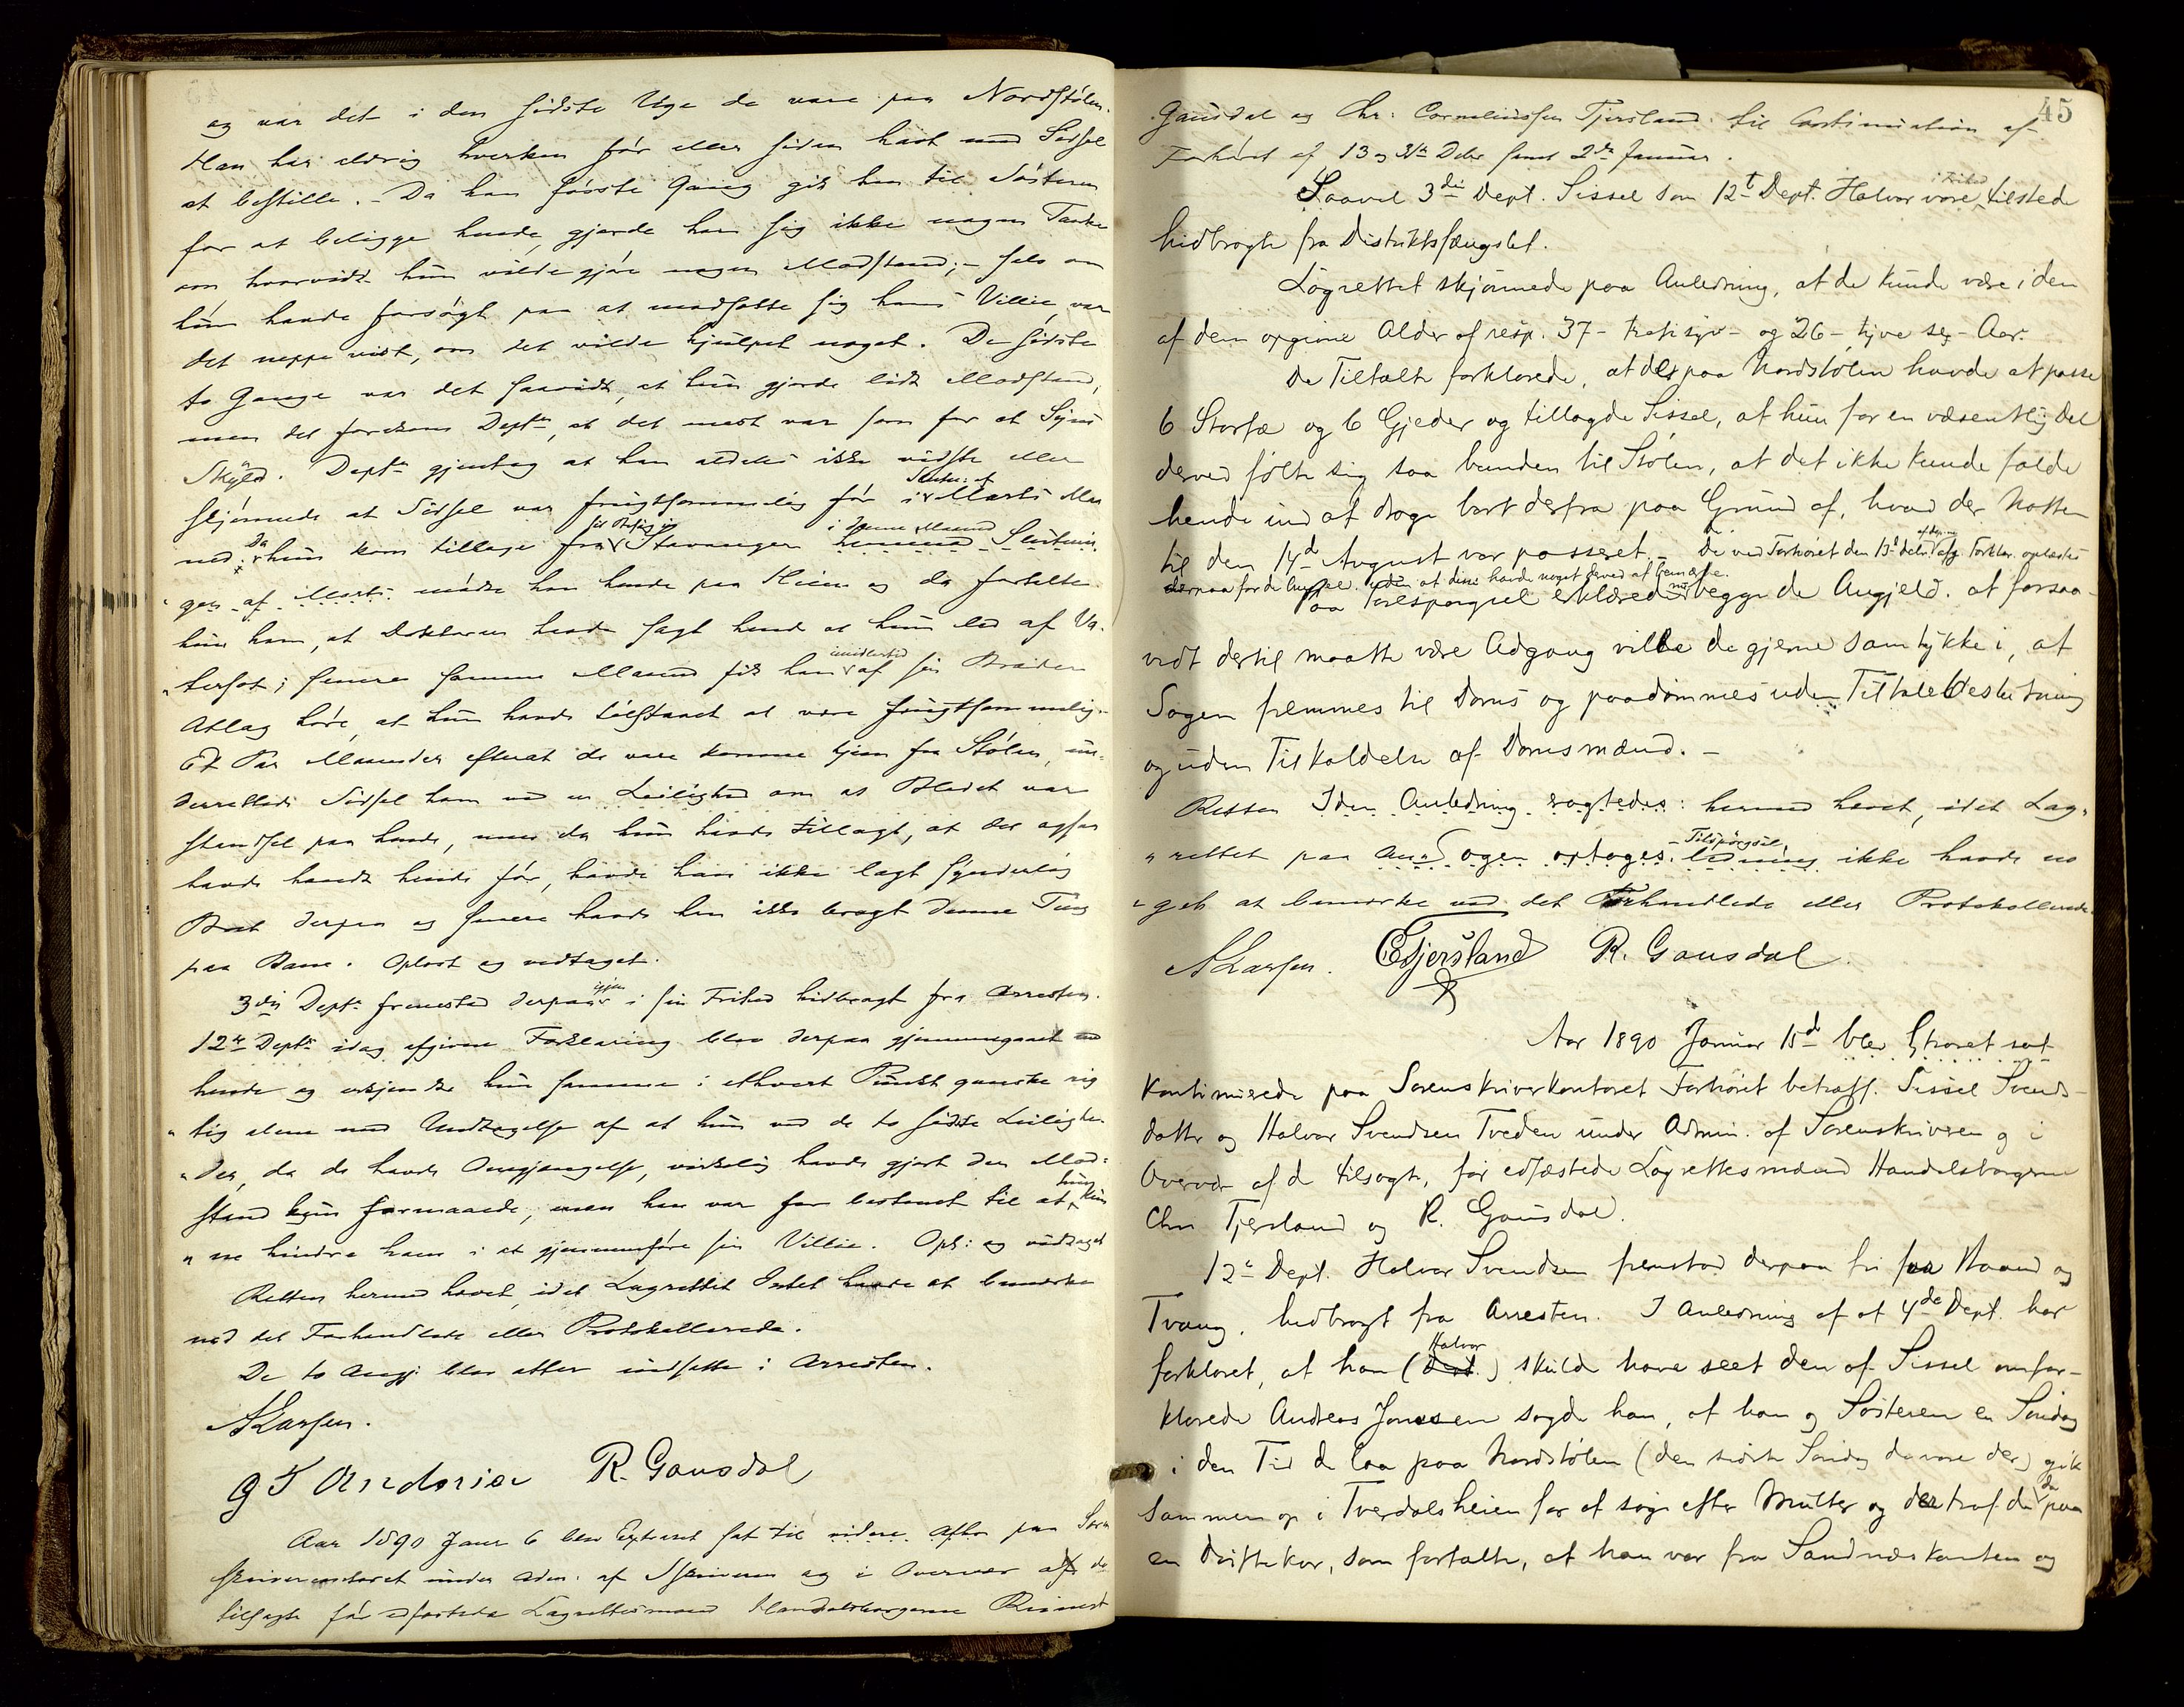 og var det i den sidste Uge de vare paa Nordstølen.
Han har aldrig hverken før eller siden havt med Sidsel
at bestille. - Da han første Gang gik hen til Søsteren
for at beligge hende, gjorde han sig ikke nogen Tanke
om hvorvidt hun vilde gjøre nogen Modstand; - selv om
hun havde forsøgt paa at modsætte sig hans Villie, var
det neppe vist, om det vilde hjulpet noget. De sidste
to Gange var det saavidt, at hun gjorde lidt Modstand,
men det forekom Dept., at det mest var som for at Syns
Skyld. Dept. gjentog at han aldeles ikke vidste eller
skjønnede at Sidsel var frugtsommelig før i Slutn: af Marts Maa
ned. Da hun kom tilbage fra Stavanger i denne Maaned Slutnin
gen af Marts mødte han hende paa Heien og da fortalte
hun ham, at Doktoren havde sagt hende at hun led af Va-
tersot; senere samme Maaned fik han imidlertid af sin Broder
Atlag høre, at hun havde tilstaaet at være frugtsommelig.
Et Par Maaneder efterat de vare komne hjem fra Stølen, un-
derrettede Sidsel ham ved en Leilighed om at Blodet var
standset paa hende, men da hun havde tillagt, at det ogsaa
havde hændt hende før, havde han ikke lagt synderlig
Bret derpaa og senere havde hun ikke bragt denne Ting
paa Bane. Oplæst og vedtaget.
3die Dept. fremstod derpaa igjen i sin Frihed hidbragt fra Arresten.
12te Depts idag afgivne Forklaring blev derpaa gjennemgaaet med
hende og erkjendte hun samme i ethvert Punkt ganske rig
tig alene med Undtagelse af at hun ved de to sidste Leilighe-
der, da de havde Omgjængelse, virkelig havde gjort den Mod-
stand hun formaaede, men han var for bestemt til at hun kun
ne hindre ham i at gjennemføre sin Villie. Opl: og vedtaget
Retten hermed hævet, idet Lagrettet Intet havde at bemærke
ved det Forhandlede eller Protokollerede.
De to Angj. blev atter indsatte i Arresten.
A Larsen.
R. Gausdal
Aar 1890 Janr 6 blev Extraret sat til videre paa Soren
skriverkontoret under Adm. af Skriveren og i Overvær af de
tilsagte før edfæstede Lagrettesmænd Handelsborgerne
45
Gausdal og Chr: Corneliussen Tjersland til Continuation af
Forhøret af 13 og 31te Debr samt 2den Januar.
Saavel 3die Dept. Sissel som 12te Dept. Halvor vare i Frihed tilstede
hidbragte fra Distriktsfængslet.
Lagrettet skjønnede paa Anledning, at de kunde være i den
af dem opgivne Alder af resp. 37 - tretisyv - og 26 - tyve sex - Aar.
De Tiltalte forklarede, at de paa Nordstølen havde at passe
6 Storfæ og 6 Gjeder og tillagde Sissel, at hun for en væsentlig Del
derved følte sig saa bunden til Stølen, at det ikke kunde falde
hende ind at drage bort derfra paa Grund af, hvad der Natten
til den 14de August var passeret. - De ved Forhøret den 13de Debr. af Dep. afg. Forklar. oplæstes
derpaa for de uden at disse havde noget derved at bemærke.
Paa Forespørgsel erklærede nu begge de Angjeld. at forsaa-
vidt dertil maatte være Adgang ville de gjerne samtykke i, at
Sagen fremmes til Doms og paadømmes uden Tiltalebeslutning
og uden Tilkaldelse af Domsmænd. -
Retten Iden Anledning hermed hævet, idet Lag-
rettet paa An Sagen optoges. ledning Tilspørgsel ikke havde no
get at bemærke ved det Forhandlede eller Protokollerede.
A Larsen. CTjersland R. Gausdal.
Aar 1890 Januar 15de blev Extraret sat
kontinuerede paa Sorenskriverkontoret Forhøret betræff. Sissel Svends-
datter og Halvor Svendsen Tveden under Admin. af Sorenskriveren og i
Overvær af de tilsagte, før edfæstede Lagrettesmænd Handelsborgerne
Chr Tjersland og R. Gausdal.
12te Dept. Halvor Svendsen fremstod derpaa fri for Baand og
Tvang, hidbragt fra Arresten. I Anledning af at 4de Dept. har
forklaret, at han (Dept. Halvor) skulde have seet den af Sissel omfor-
klarede Andreas Jonassen sagde han, at han og Søsteren en Søndag
i den Tid de laa paa Nordstølen (den sidste Søndag de vare der) gik
sammen op i Tverdalsheien for at søge efter Multer og der traf de da paa
en Driftekar, som fortalte, at han var fra Sandnæskanten og